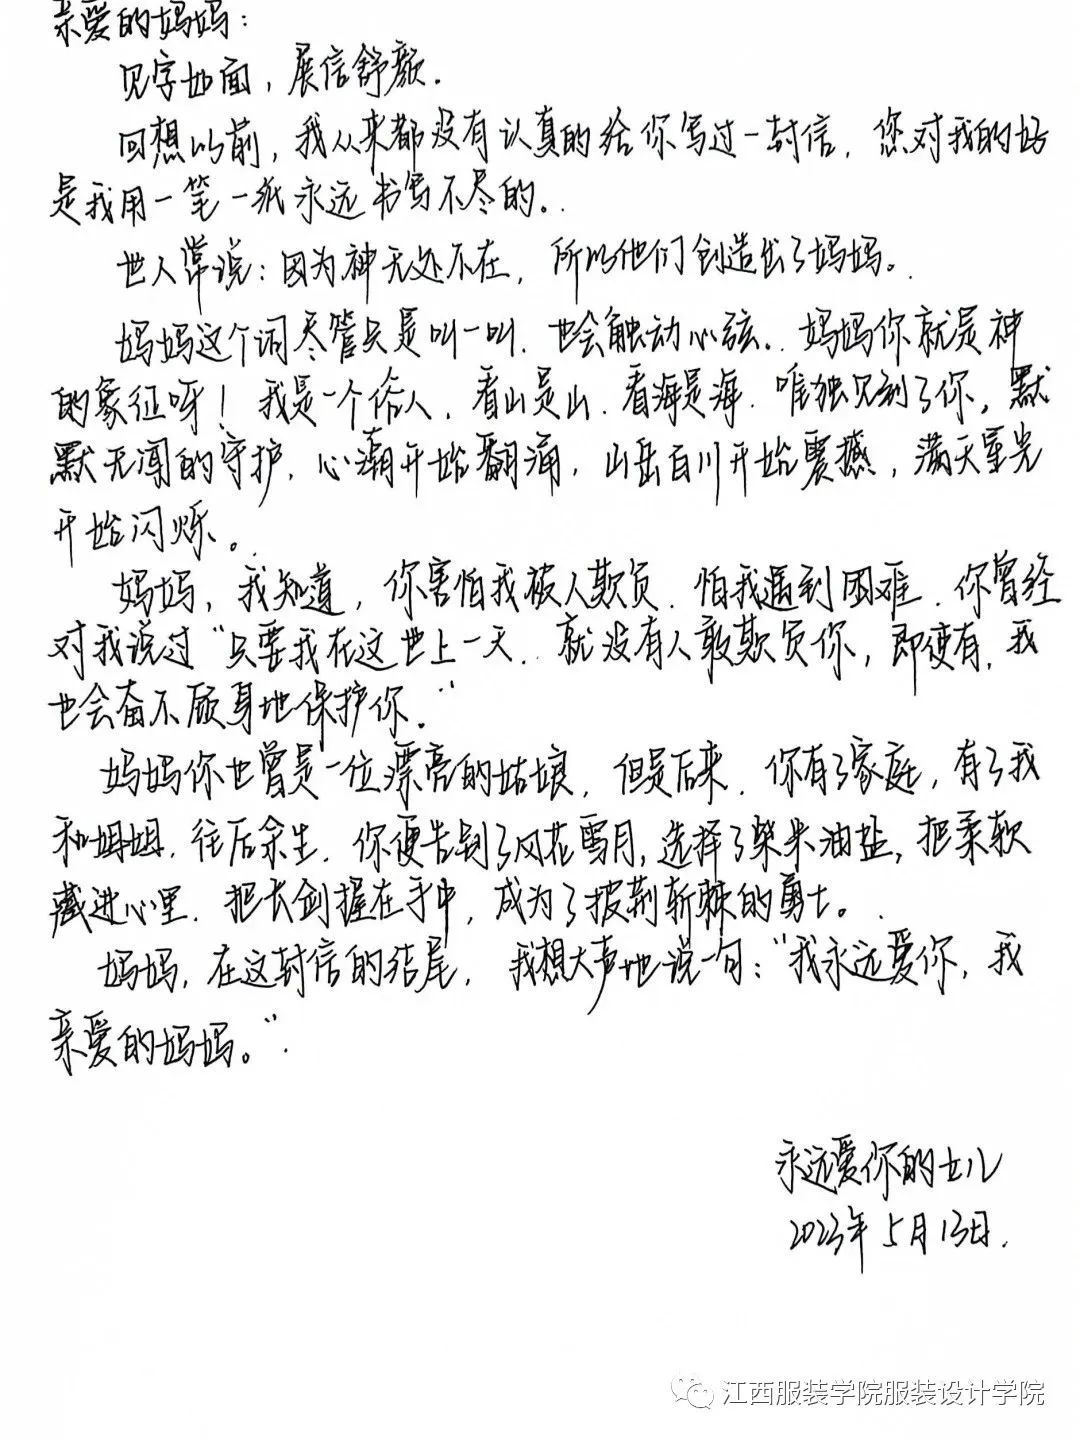 亲爱的妈妈：
见字如面，展信舒颜.
回想以前，我从来都没有认真的给你写过一封信.您对我的好
是我用一笔一纸永远书写不尽的。
世人常说：因为神无处不在，所以他们创造出了妈妈。
妈妈这个词尽管只是叫一叫.也会触动心弦..妈妈你就是神
的象征呀！我是一个俗人，看山是山.看海是海.唯独见到了你，默
默无闻的守护.心潮开始翻涌，山岳百川开始震撼，满天星光
开始闪烁。
妈妈，我知道，你害怕我被人欺负.怕我遇到困难.你曾经
对我说过“只要我在这世上一天..就没有人敢欺负你，即使有，我
也会奋不顾身地保护你.”
妈妈你也曾是一位漂亮的姑娘.但是后来.你有了家庭，有了我
和姐姐.往后余生.你便告别了风花雪月，选择了柴米油盐，把柔软
藏进心里.把长剑握在手中，成为了披荆斩棘的勇士。
妈妈，在这封信的结尾，我想大声地说一句：“我永远爱你，我
亲爱的妈妈。”.
永远爱你的女儿
2023年5月13日.
江西服装学院服装设计学院